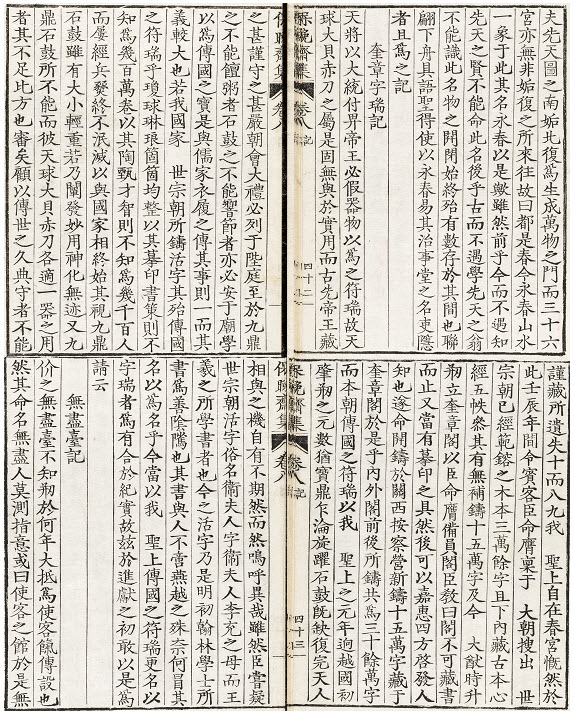 夫先天圖之南姤北復爲生成萬物之門而三十六
宮亦無非姤復之所來往故曰都是春今永春山水
一象于此其名永春以是歟雖然前乎今而不遇知
先天之賢不能命此名後乎古而不遇學先天之翁
不能識此名物之開閉始終殆有數存於其間也聯
翩下舟具語聖得使以永春易其治事堂之名吏隱
者且爲之記
奎章字瑞記
天將以大統付畀帝王必假器物以爲之符瑞故天
球大貝赤刀之屬是固無與於實用而古先帝王藏
保晚齋集 卷八 記 四十二
之甚謹守之甚嚴朝會大禮必列于陛庭至於九鼎
之不能饘粥者石鼓之不能響節者亦必安于廟學
以爲傳國之寶是與儒家衣履之傳其事則一而其
義較大也若我國家 世宗朝所鑄活字其殆傳國
之符瑞乎瓊球琳琅箇箇均整以其摹印書策則不
知爲幾百萬卷以其陶甄才智則不知爲幾千百人
而屢經兵燹終不泯滅以與國家相終始其視九鼎
石鼓雖有大小輕重若乃闡發妙用神化無迹又九
鼎石鼓所不能而彼天球大貝赤刀各適一器之用
者其不足比方也審矣顧以傳世之久典守者不能
謹藏所遺失十而八九我 聖上自在春宮慨然於
此壬辰年間令賓客臣命膺稟于 大朝搜出 世
宗朝已經範鎔之木本三萬餘字且下內藏古本心
經五帙悉其有無補鑄十五萬字及今 大猷時升
刱立奎章閣以臣命膺備員閣臣敎曰閣不可藏書
而止又當有摹印之具然後可以嘉惠四方啓發人
知也遂命開鑄於關西按察營新鑄十五萬字藏于
奎章閣於是乎內外閣前後所鑄共爲三十餘萬字
而本朝傳國之符瑞以我 聖上之元年迥越國初
肇刱之元數猶寶鼎乍淪旋躍石鼓旣缺復完天人
保晚齋集 卷八 記 四十三
相與之機自有不期然而然嗚呼異哉雖然臣嘗疑
世宗朝活字俗名衛夫人字衛夫人李充之母而王
羲之所學書者也今之活字乃是明初翰林學士所
書爲善陰騭也其書與人不啻燕越之殊宗何冒其
名以爲名乎今當以我 聖上傳國之符瑞更名以
字瑞者爲有合於紀實故玆於進獻之初敢以是爲
請云
無盡臺記
价之無盡臺不知刱於何年大抵爲使客餼傳設也
然其命名無盡人莫測指意或曰使客之館於是無